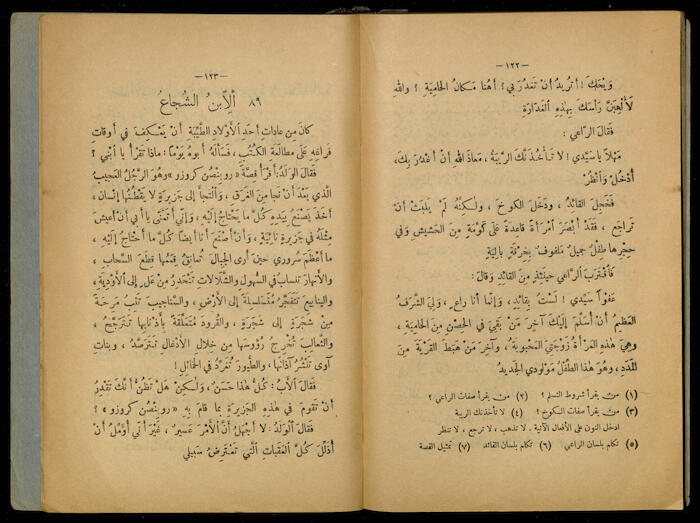 — ١٢٢ —
وَيْحَكَ ! أتُريدُ أنْ تَغدُرَ بي ؟ أهُنا مَكانُ الحامِيَةِ ؟ واللهِ
لَألْعَبَنَّ برَأسِكَ بهٰذِهِ الغَدّارَة
فقالَ الرّاعي :
مَهْلاً يا سَيِّدي ! لا تَأخُذَنَّكَ الرِّيبَةُ ، مَعاذَ اللهِ أنْ أغدُرَ بِكَ،
أُدْخُلْ وَانْظُرْ
فَخَجِلَ القائِدُ ، ودَخَلَ الكوخَ ، ولكِنَّهُ لَمْ يَلبَثْ أنْ
تَراجَعَ ، فَقَدْ أبْصَرَ امْرَأةً قاعدةً على كَوْمَةٍ مِنَ الحَشيشِ وَفي
حِجْرِها طِفْلٌ جميلٌ مَلفوفٌ بِخِرْقَةٍ بالِيَةٍ
فاقْتَرَبَ الرّاعي حينَئِذٍ مِنَ القائِدِ وَقالَ :
عَفْواً سَيِّدي ! لَسْتُ بِقائِدٍ ، وَإنَّما أنا راعٍ ، وَلِيَ الشَّرَفُ
العَظيمُ أنْ أُسَلِّمَ إلَيْكَ آخِرَ مَنْ بَقِيَ في الحِصْنِ مِنَ الحامِيَةِ ،
وهِيَ هٰذِهِ المَرْأةُ زَوْجَتي المَحْبوبَةُ ، وَآخِرَ مَنْ هَبَطَ القَرْيَةَ مِنَ
المَدَدِ ، وهُوَ هٰذا الطِّفْلُ مَوْلودي الجَديدُ
(١) من يقرأ شروط التسلم ؟ (٢) من يقرأ صفات الراعي ؟
(٣) من يقرأ صفات الكوخ ؟ (٤) لا تأخذنك الريبة
ادخل النون على الأفعال الآتية . لا تذهب ، لا ترجع ، لا تنظر
(٥) تكلم بلسان الراعي (٦) تكلم بلسان القائد (٧) تمثيل القصة
— ١٢٣ —
٨٩ ألِابنُ الشُّجاعُ
كانَ مِن عاداتِ أحَدِ الأوْلادِ الطَّيِّبَةِ أنْ يَعْتَكِفَ في أوقاتِ
فراغِهِ عَلى مطالعَةِ الكُتُبِ ، فَسَألَهُ أبوهُ يَوْمًا : ماذا تَقرَأُ يا ابْني ؟
فقالَ الوَلَدُ : أقْرَأُ قِصَّةَ « روبنْصُنْ كروزو » وهُوَ الرَّجُلُ العَجيبُ
الَّذي بَعْدَ أنْ نَجا مِنَ الغَرَقِ ، وَالْتَجَأَ إلى جَزيرَةٍ لا يَقطُنُها إنسان ،
أخَذَ يَصْنَعُ بِيَدِهِ كُلَّ ما يَحْتاجُ إلَيْهِ ، وإنّي أتَمَنّى يا أبي أنْ أعيشَ
مِثْلَهُ في جَزيرَةٍ نائِيَةٍ ، وَأنْ أصْنَعَ أنا أيضًا كُلَّ ما أحْتاجُ إلَيْهِ ،
ما أعْظَمَ سُروري حينَ أرى الجِبالَ تُعانِقُ قِمَمُها قِطَعَ السَّحابِ ،
والأنْهارَ تنسابُ في السُّهولِ والشَّلّالاتِ تَنْحَدِرُ مِن عَلٍ إلى الأوْدِيَةِ ،
والينابيعَ تَتَفَجَّرُ مُتَسَلسِلَةً إلى الأرْضِ ، والسَّناجيبَ تَثِبُ مَرِحَةً
مِنْ شجَرَةٍ إلى شَجَرَةٍ ، والقُرودَ مُتَعَلِّقَةً بِأذْنابِها تَتَرَجَّحُ ،
والثَّعالِبَ تُخْرِجُ رُؤوسَها مِن خِلالِ الأدْغالِ تَتَرَصَّدُ ، وبناتِ
آوى تَنْشُرُ آذانَها ، والطُّيورَ تُغَرِّدُ في الخَمائِلِ !
فَقالَ الأَبُ : كُلُّ هٰذا حَسَنٌ ، ولٰكِنْ هَلْ تَظُنُّ أنَّكَ تَقْدِرُ
أنْ تَقومَ في هٰذِهِ الجَزيرَةِ بِما قامَ بِهِ « روبنْصُن كروزو » ؟
فَقالَ الوَلَدُ : لا أجْهَلُ أنَّ الأمْرَ عَسيرٌ ، غَيْرَ أنّي أُؤَمِّلُ أنْ
أُذَلِّلَ كُلَّ العَقَباتِ الَّتي تَعْتَرِضُ سَبيلي